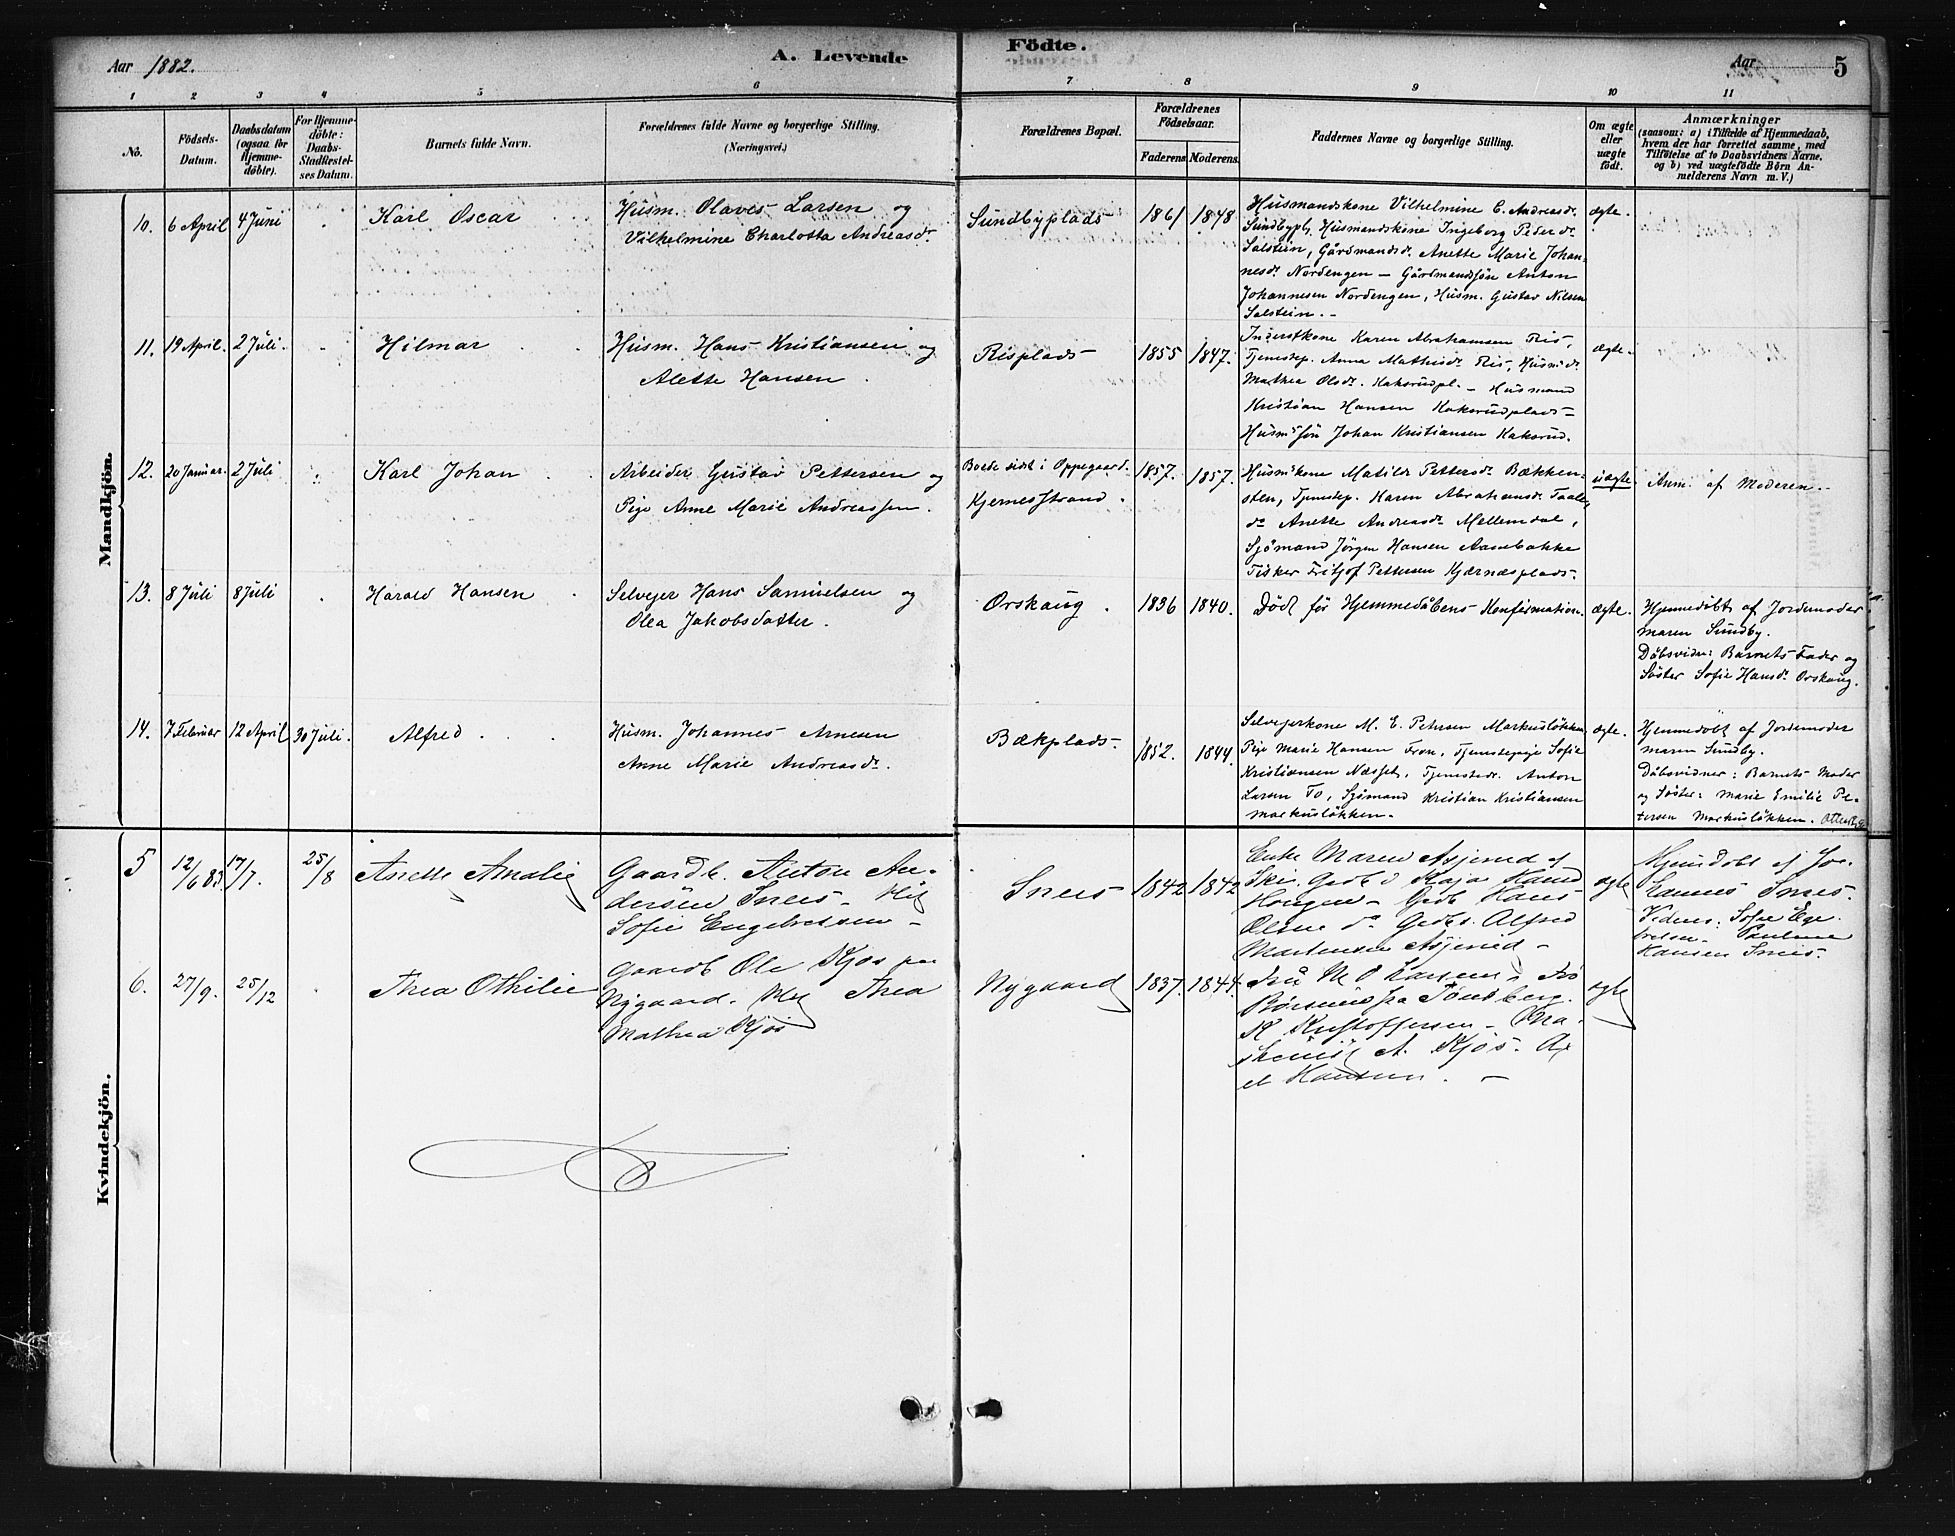 Aar 1882.
A. Levende
Födte.
Aar
5
1 2 3 4 5 6 7 8 9 10 11
No.
Födsels-
Datum.
Daabsdatum
(ogsaa for
Hjemme-
döbte).
For Hjemme-
döbte:
Daabs-
Stadfæstel-
ses Datum.
Barnets fulde Navn.
Forældrenes fulde Navne og borgerlige Stilling.
(Næringsvei.)
Forældrenes Bopæl.
Forældrenes
Födselsaar.
Faderens Moderens.
Faddernes Navne og borgerlige Stilling.
Om ægte
eller
uægte
födt.
Anmærkninger
(saasom: a) i Tilfælde af Hjemmedaab,
hvem der har forrettet samme, med
Tilföielse af to Daabsvidners Navne,
og b) ved uægtefödte Börn An-
melderens Navn m. V.)
Mandkjön.
10. 6 April 4 Juni
Karl Oscar
Husm. Olaves Larsen og
Vilhelmine Charlotta Andreasdr.
Sundbyplads
1861 1848
Husmandskone Vilhelmine C. Andreasdr.
Sundbypl, Husmandskone Ingeborg Pedersdr.
Solstein, Gårdmandsdr. Anette Marie Johan-
nesdr. Nordengen – Gårdmandssön Anton
Johannesen Nordengen, Husm. Gustav Nilsen
Solstein. –
ægte.
11. 19 April. 2 Juli.
Hilmar
Husm. Hans Kristiansen og
Alette Hansen
Risplads
1855 1847.
Inderstkone Karen Abrahamsen Ris,
Tjenestep. Anna Mathisdr. Ris, Husmdr.
Mathea Olsdr. Kaksrudpl. – Husmand
Kristian Hansen Kaksrudplads –
Husm sön Johan Kristiansen Kaksrud.
ægte.
12. 20 Januar. 2 Juli
Karl Johan
Arbeider Gustav Pettersen og
Pige Anne Marie Andreassen.
Boede sidst i Oppegaard.
Kjernesstrand.
1857. 1857.
Husmkone Matilde Pettersdr. Bækken-
sten, Tjenestep. Karen Abrahamsdr.
do Anette Andreasdr. Mellemdal,
Sjömand Jörgen Hansen Aanebakke
Fisker Fritjof Pettersen Kjærnæsplads.
uægte.
Anm. af Moderen.
13. 8 Juli 8 Juli
Harald Hansen
Selvejer Hans Samuelsen og
Olea Jakobsdatter.
Orskaug.
1836 1840.
Död för Hjemmedåbens Konfirmation.
ægte.
Hjemmedöbt af Jordemoder
Maren Sundby.
Döbsvidne: Barnets Fader og
Söster Sofie Hansdr. Orskaug.
14. 7 Februar 12 April 30 Juli.
Alfred
Husm. Johannes Arnesen
Anne Marie Andreasdr.
Bækplads.
1852. 1844.
Selvejerkone M. E. Petersen Markuslökken,
Pige Marie Hansen Fron, Tjenestepige Sofie
Kristiansen Næsset, Tjenestedr. Anton
Larsen To, Sjömand Kristian Kristiansen
Markuslökken.
ægte.
Hjemmedöbt af Jordemoder
Maren Sundby.
Döbsvidner: Barnets Moder
og Söster: Marie Emilie Pe-
tersen Markuslökken.
Kvindekjön.
5 12/6 83. 17/7. 25/8
Anette Amalie
Gaardb. Anton An-
dersen Snees
Sofie Engebretsen –
Snees
1842 1842
Enke Maren Asjerud af
Ski. Gedb d Kaja Hansd
Haugen – Gedb Hans
Olsen do Gedb s. Alfred
Martensen Asjerud –
ægte
Hjemdöbt af Jo-
hannes Snees.
Vidner: Sofie Ege-
bretsen – Pauline
Hansen Snees.
6. 27/9. 25/12
Thea Othilie
Gaardb Ole Kjos paa
Nygaard. Thea
Mathea Kjos
Nygaard
1837. 1844.
Fru M O Larsen
fra Tönsberg.
K Kristoffersen –
A. Kjos. Ax
el Hansen. –
ægte